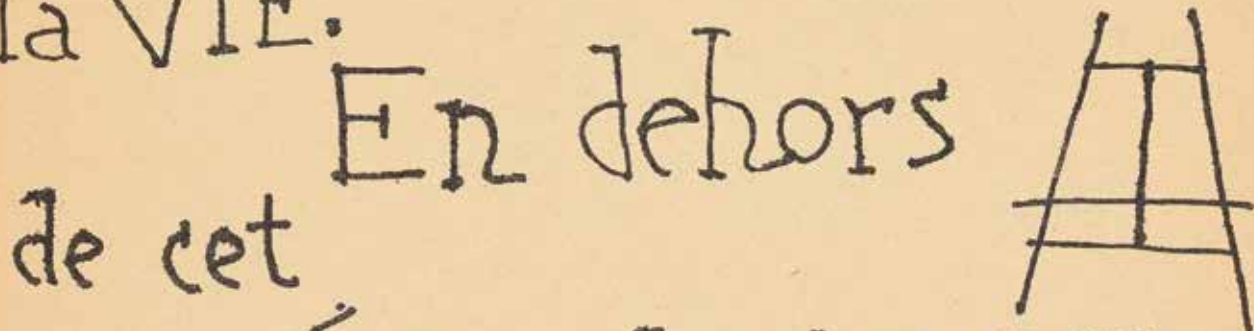 la VIE.
En dehors
de cet